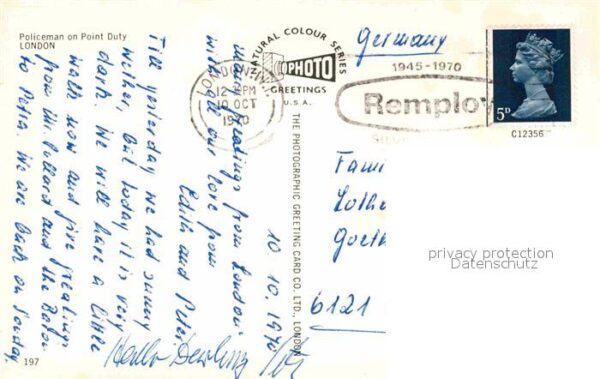 Policeman on Point Duty
LONDON
Germany
NATURAL COLOUR SERIES
PHOTO
GREETINGS
U.S.A.
LONDON
12 PM
10 OCT
1970
1945-1970
Remploy
5D
C12356
THE PHOTOGRAPHIC GREETING CARD CO. LTD., LONDON
10.10.1970
many greetings from London
with all our love from
Edith and Peter
Till yesterday we had sunny
wether, but today it is very
dark. We will have a little
walk now and give greatings
from Mr. Pollard and the
to Petra. We are back on Sonday.
Fami
Lothe
Goeth
6121
privacy protection
Datenschutz
197